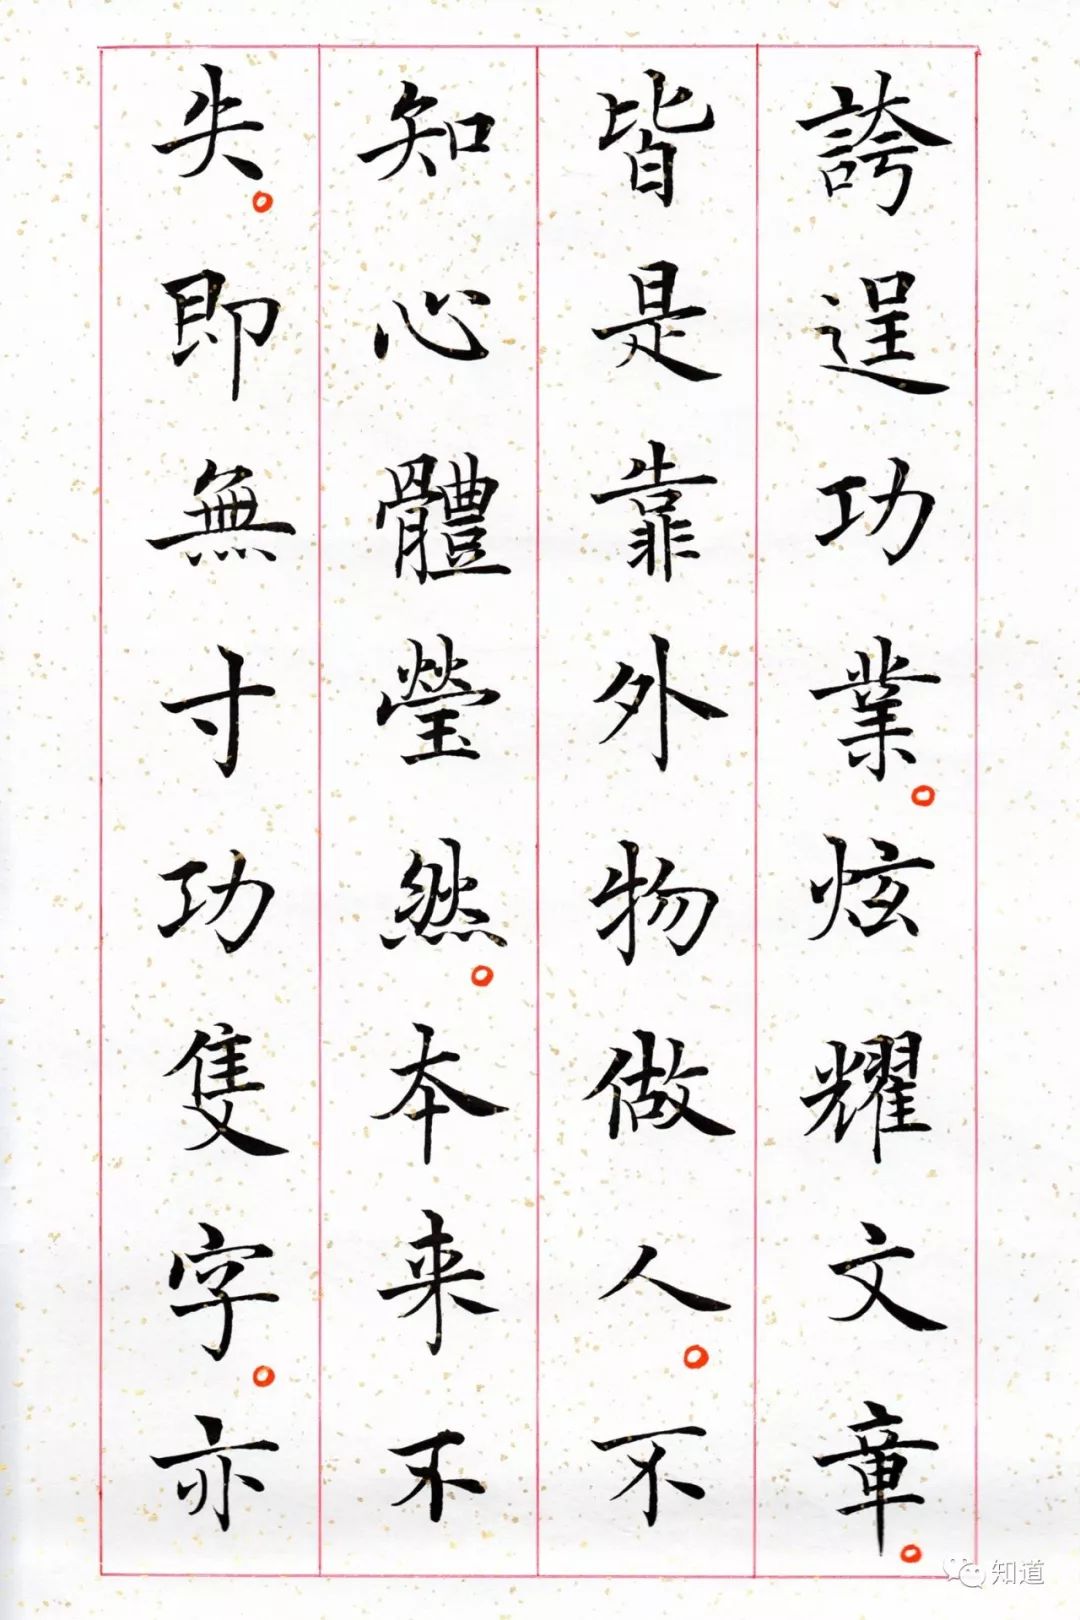 誇逞功業。炫耀文章。
皆是靠外物做人。不
知心體瑩然。本来不
失。即無寸功隻字。亦
知道